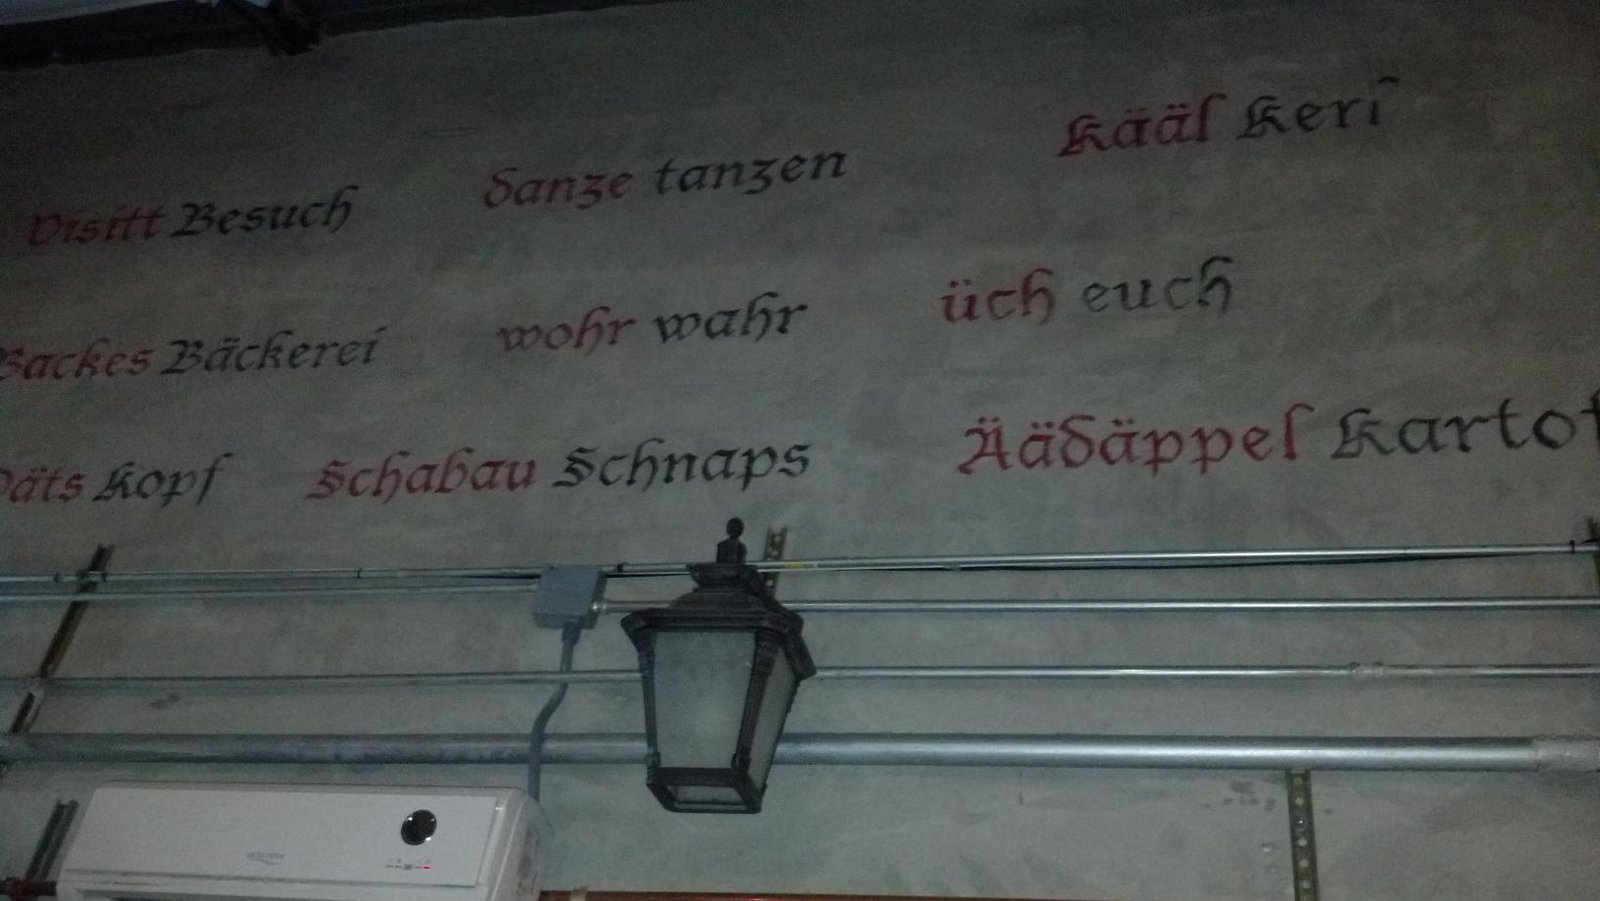 Visitt Besuch danze tanzen Kääl Kerl
Backes Bäckerei wohr wahr üch euch
Däts Kopf Schabau Schnaps Äädäppel Kartof